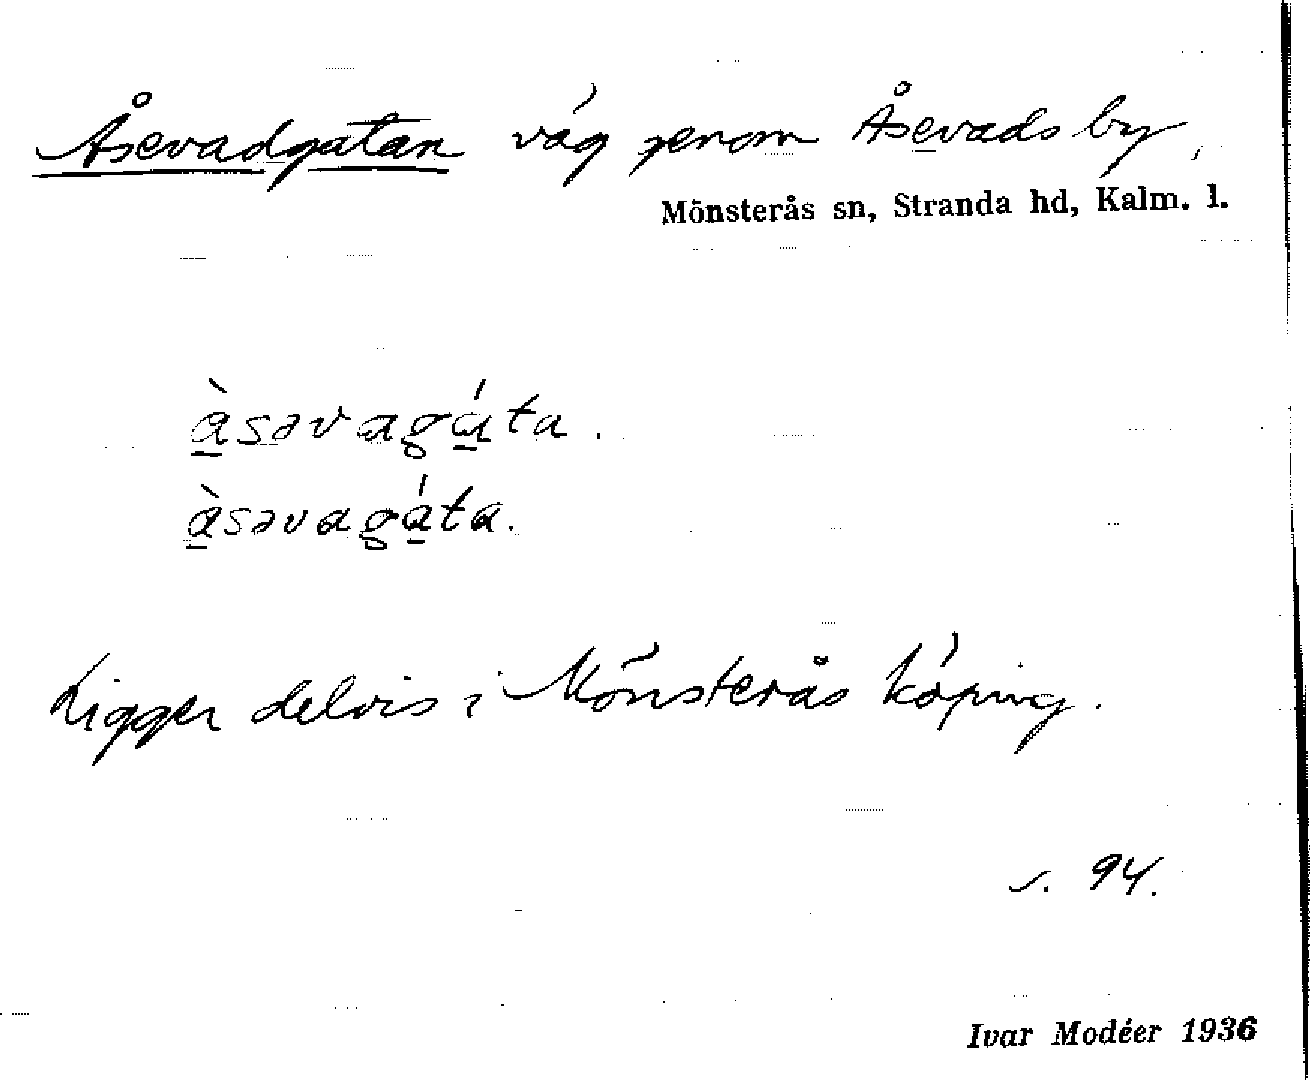 Åsevadgatan väg genom Åsevads by,
Mönsterås sn, Stranda hd, Kalm. l.
à̠səvagá̠ta.
à̠səvagá̠ta.
Ligger delvis i Mönsterås köping.
s. 94.
Ivar Modéer 1936